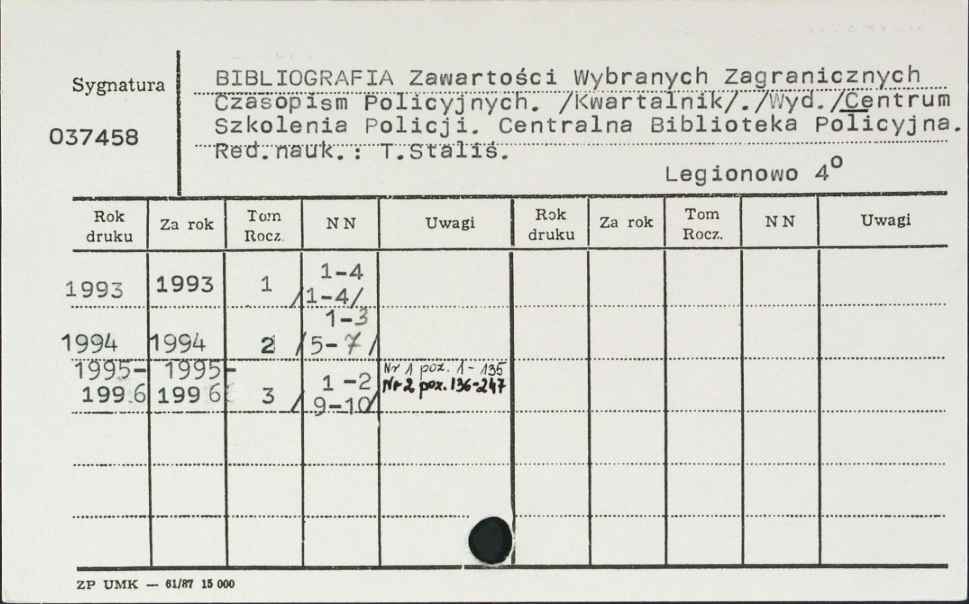 Sygnatura
037458
BIBLIOGRAFIA Zawartości Wybranych Zagranicznych
Czasopism Policyjnych. /Kwartalnik/./Wyd./Centrum
Szkolenia Policji. Centralna Biblioteka Policyjna.
Red.nauk.: T.Staliś.
Legionowo 4º
Rok druku Za rok Tom Rocz. N N Uwagi Rok druku Za rok Tom Rocz. N N Uwagi
1993 1993 1 1-4
/1-4/
1-3
1994 1994 2 /5-7/
1995- 1995- Nr 1 poz. 1-135
1996 1996 3 1-2 Nr 2 poz. 136-247
/9-10/
ZP UMK — 61/87 15 000